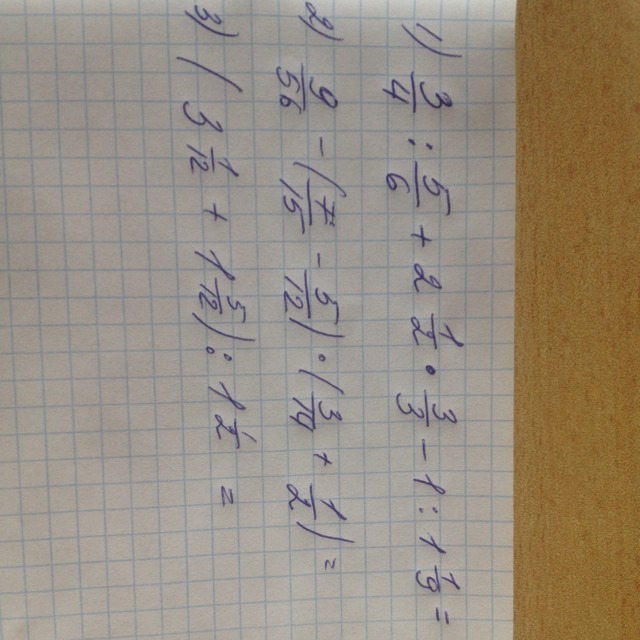 1) 3/4 : 5/6 + 2 1/2 · 3/3 - 1 : 1 1/9 =
2) 9/56 - (7/15 - 5/12) · (3/14 + 1/2) =
3) (3 1/12 + 1 5/12) : 1 =